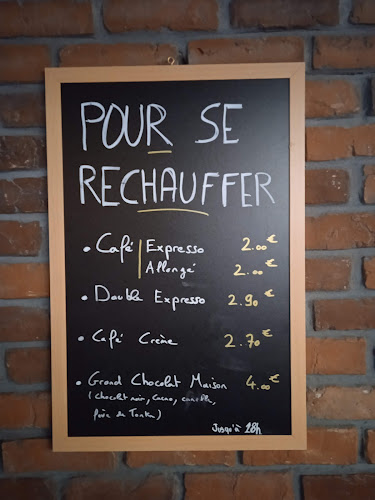 POUR SE
RECHAUFFER
• Café | Expresso 2.00€
Allongé 2.00€
• Double Expresso 2.90€
• Café Crème 2.70€
• Grand Chocolat Maison 4.00€
(chocolat noir, cacao, cannelle,
fève de Tonka)
Jusqu'à 18h